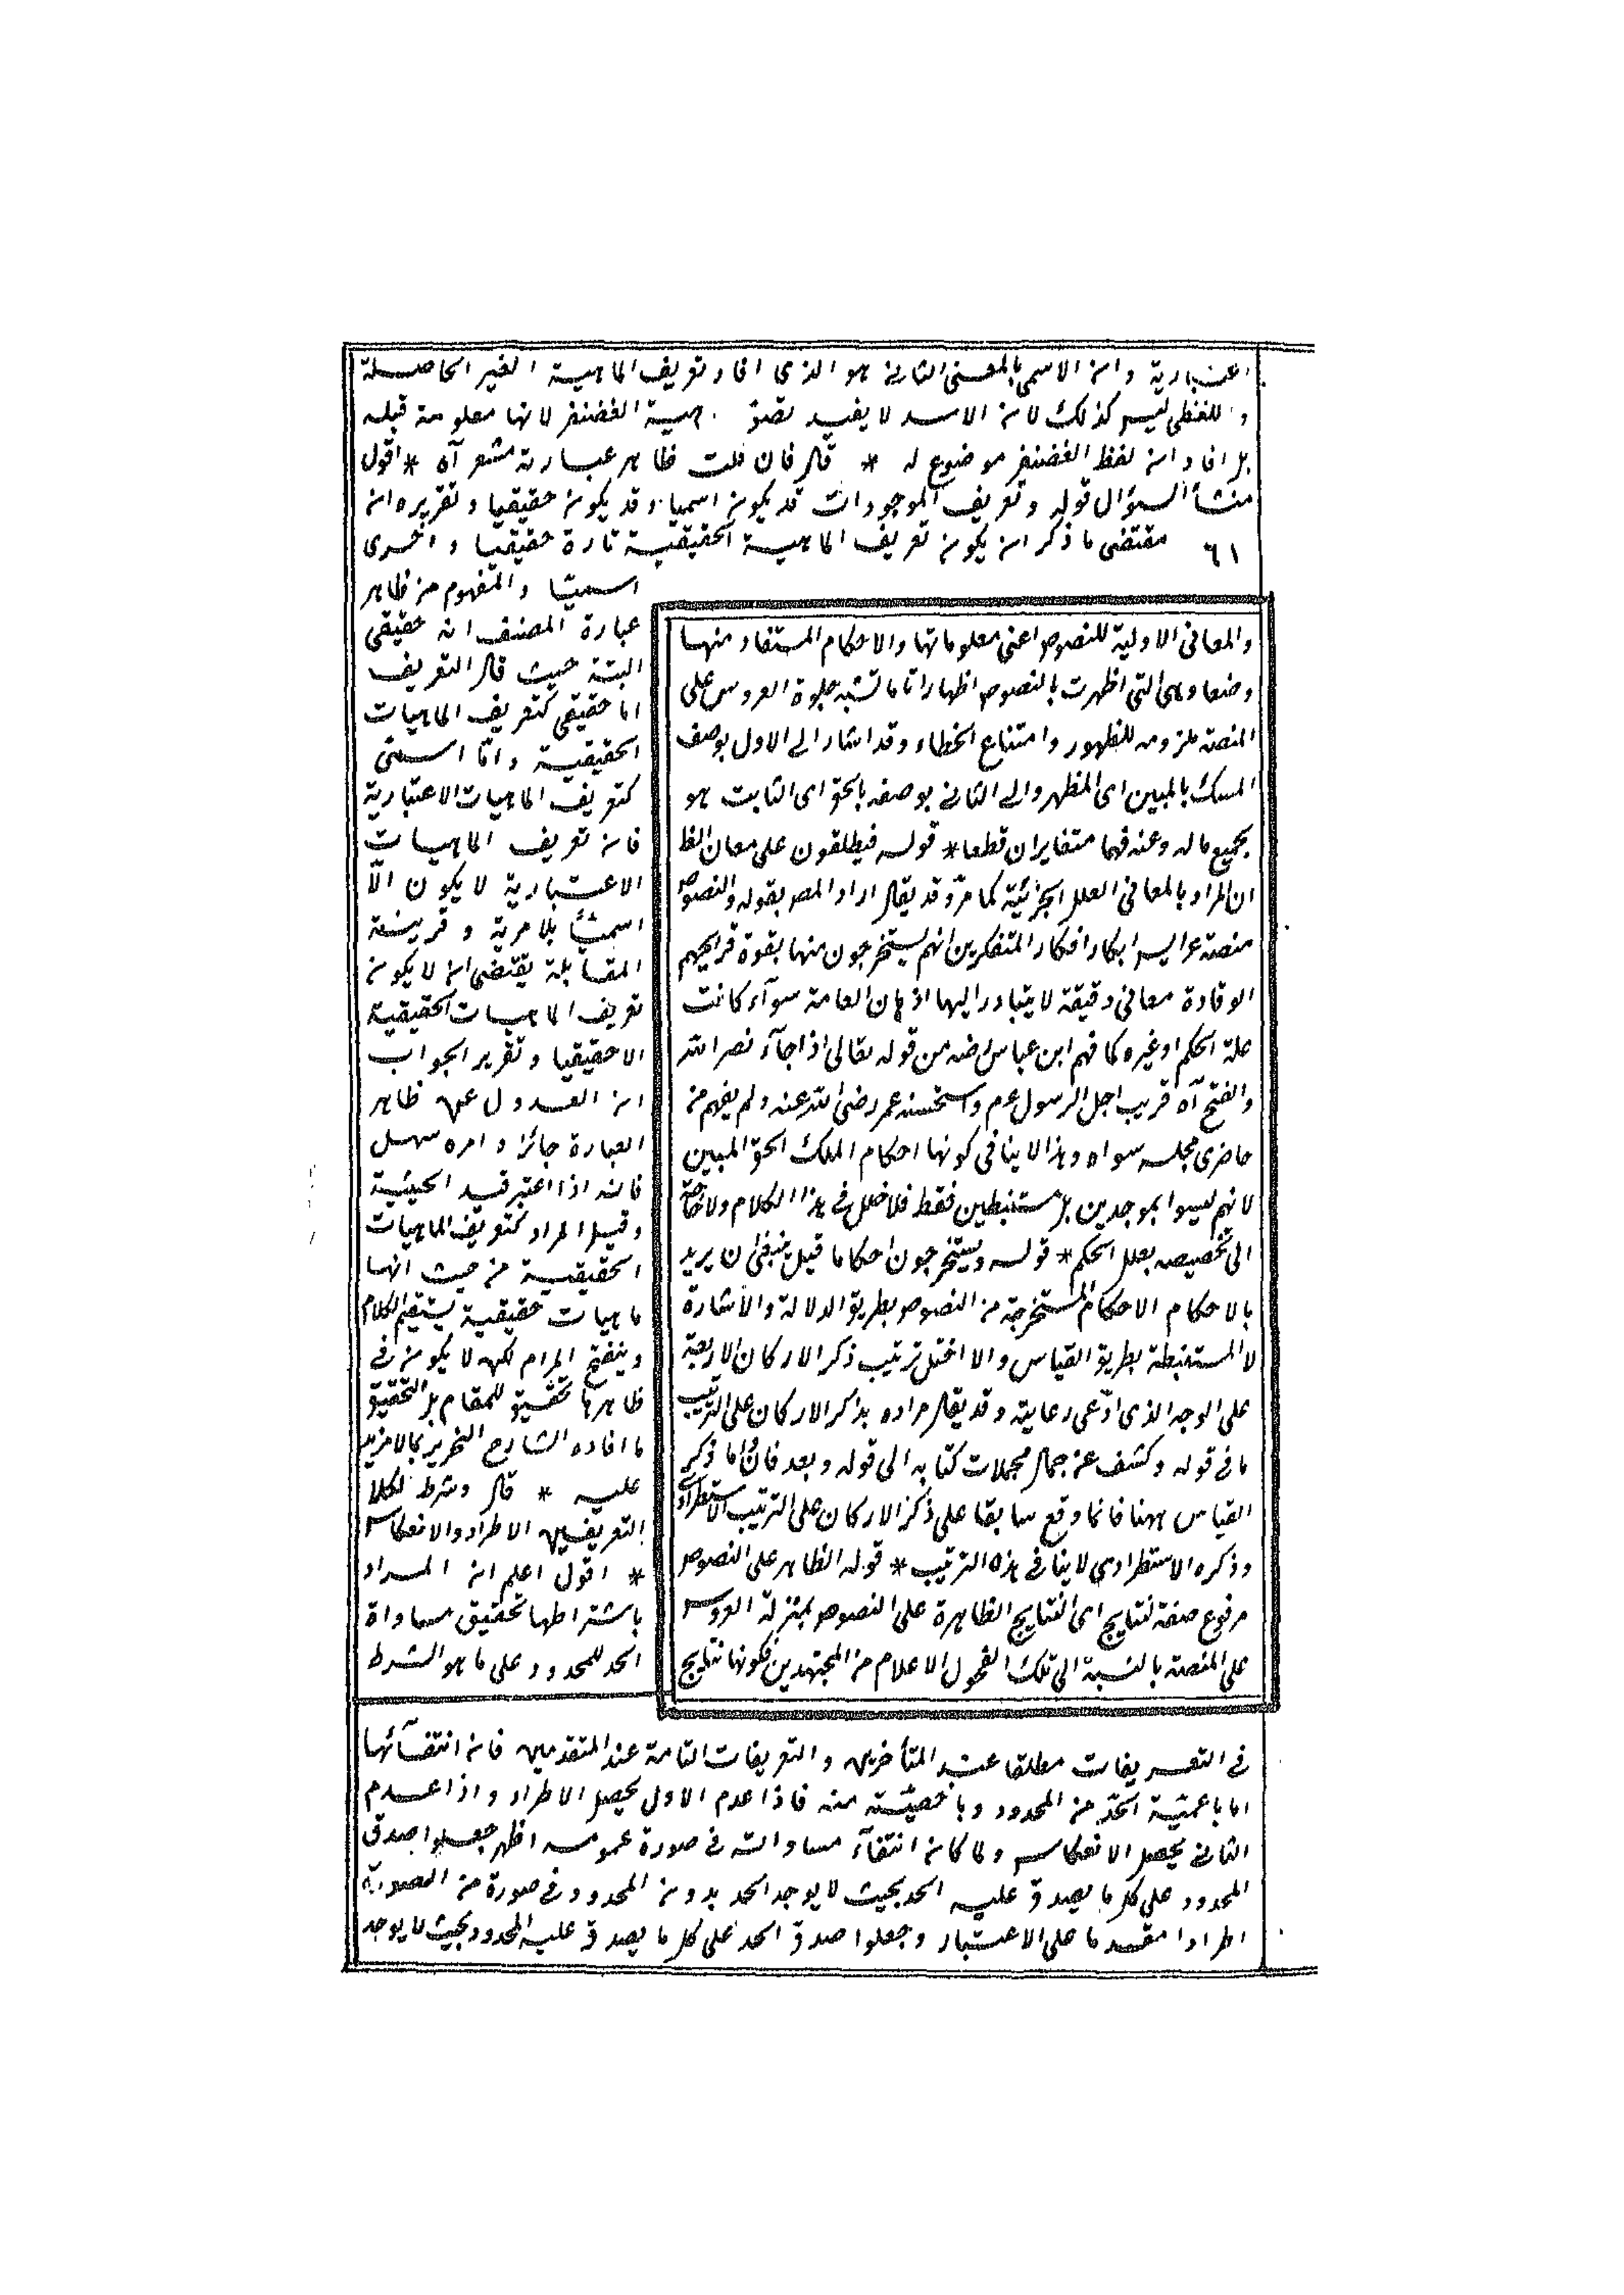 اعتبارية وان الاسمى بالمعنى الثانى هو الذى افاد تعريف الماهية الغير الحاصلة
واللفظى ليس كذلك لان الاسد لا يفيد تصور ماهية الغضنفر لانها معلومة قبله
بل افاد ان لفظ الغضنفر موضوع له * قال فان قلت ظاهر عبارته مشعر آه * اقول
منشأ السؤال قوله وتعريف الموجودات قد يكون اسميا وقد يكون حقيقيا وتقريره ان
٦١ مقتضى ما ذكر ان يكون تعريف الماهية الحقيقية تارة حقيقيا واخرى
اسميّا والمفهوم من ظاهر
عبارة المصنف انه حقيقى
البتة حيث قال التعريف
اما حقيقى كتعريف الماهيات
الحقيقية وامّا اسمىّ
كتعريف الماهيات الاعتبارية
فان تعريف الماهيات
الاعتبارية لا يكون الّا
اسميّاً بلا مرية وقرينة
المقابلة يقتضى ان لا يكون
تعريف الماهيات الحقيقية
الا حقيقيا وتقرير الجواب
ان العدول عن ظاهر
العبارة جائز وامره سهل
فانه اذا اعتبر قيد الحيثية
وقيل المراد كتعريف الماهيات
الحقيقية من حيث انها
ماهيات حقيقية يستقيم الكلام
وينفتح المرام لكن لا يكون فى
ظاهرها تحقيق للمقام بل التحقيق
ما افاده الشارح النحرير بما لا مزيد
عليه * قال وشرط لكلا
التعريفين الاطراد والانعكاس
* اقول اعلم ان المراد
باشتراطها تحقيق مساواة
الحد للمحدود على ما هو الشرط
فى التعريفات مطلقا عند المتأخرين والتعريفات التامة عند المتقدمين فان انتفآئها
اما باعميّة الحدّ من المحدود وباخصيّته منه فاذا عدم الاول يحصل الاطراد واذا عدم
الثانى يحصل الانعكاس ولما كان انتفآء مساواته فى صورة عمومه اظهر جعلوا صدق
المحدود على كل ما يصدق عليه الحد بحيث لا يوجد الحد بدون المحدود فى صورة من الصور
اطرادا مقدما على الاعتبار وجعلوا صدق الحد على كل ما يصدق عليه المحدود بحيث لا يوجد
والمعانى الاولية للنصوص اعنى معلوماتها والاحكام المستفاد منها
وضعا وهى التى اظهرت بالنصوص اظهارا تاما تشبه جلوة العروس على
المنصة ملزومه للظهور وامتناع الخطاء وقد اشار الى الاول بوصف
المسك بالمبين اى المظهر والى الثانى بوصفه بالحق اى الثابت هو
بجميع ماله وعنه فهما متغايران قطعا * قوله فيطلقون على معان الظ
ان المراد بالمعانى العلل الجزئيّة كما مرّ وقد يقال اراد المص بقوله والنصوص
منصة عرايس ابكار افكار المتفكرين انهم يستخرجون منها بقوة قرايحهم
الوقادة معانى دقيقة لا يتبادر اليها اذهان العامة سوآء كانت
علة الحكم او غيره كما فهم ابن عباس رضه من قوله تعالى اذا جآء نصر الله
والفتح آه قريب اجل الرسول عم واستحسنه عمر رضى الله عنه ولم يفهم من
حاضرى مجلسه سواه وهذا لا ينافى كونها احكام الملك الحق المبين
لانهم ليسوا بموجدين بل مستنبطين فقط فلا خلل فى هذا الكلام ولا حاجة
الى تخصيصه بعلل الحكم * قوله ويستخرجون احكاما قيل ينبغى ان يريد
بالاحكام الاحكام المستخرجة من النصوص بطريق الدلالة والاشارة
لا المستنبطة بطريق القياس والا اختل ترتيب ذكر الاركان الاربعة
على الوجه الذى ادّعى رعايته وقد يقال مراده بذكر الاركان على الترتيب
ما فى قوله وكشف عن جمال مجملات كتابه الى قوله وبعد فان ما ذكر
القياس ههنا فانما وقع سابقا على ذكر الاركان على الترتيب الاستطرادى
وذكره الاستطرادى لا ينافى هذه الترتيب * قوله الظاهر على النصوص
مرفوع صفة لنتايج اى النتايج الظاهرة على النصوص بمنزلة العروس
على المنصة بالنسبة الى تلك الفحول الاعلام من المجتهدين فكونها نتايج